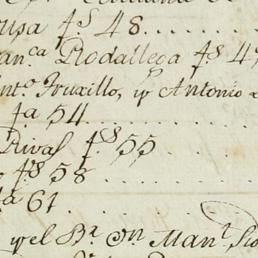 usa f.s 48........
an.ca Rodallega f.s 4
nt.o Truxillo, y Antonio
f.a 54 ..........
Rival f.s 55
f.s 58 ........
a 61 ........
y el B.r D.n Man.l